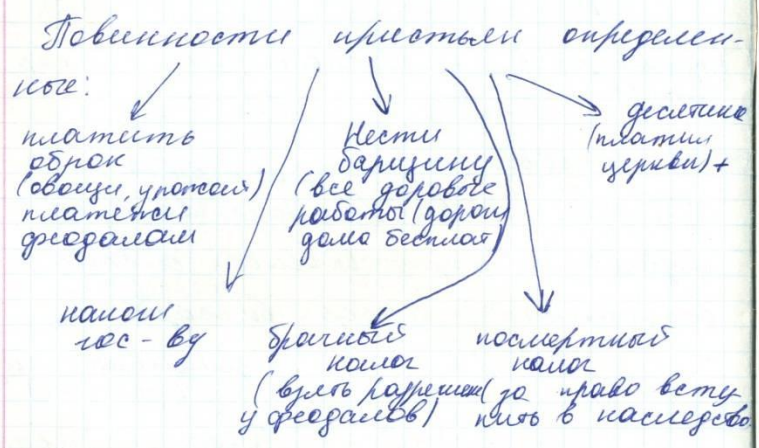 Повинности крестьян определен-
ные:
платить
оброк
(овощи, урожай)
платежи
феодалам
Нести
барщину
(все даровые
работы (дороги
дома бесплат)
десятина
(платил
церкви) +
налоги
гос-ву
брачный
налог
(взять разрешен
у феодалов)
посмертный
налог
(за право всту
пить в наследство